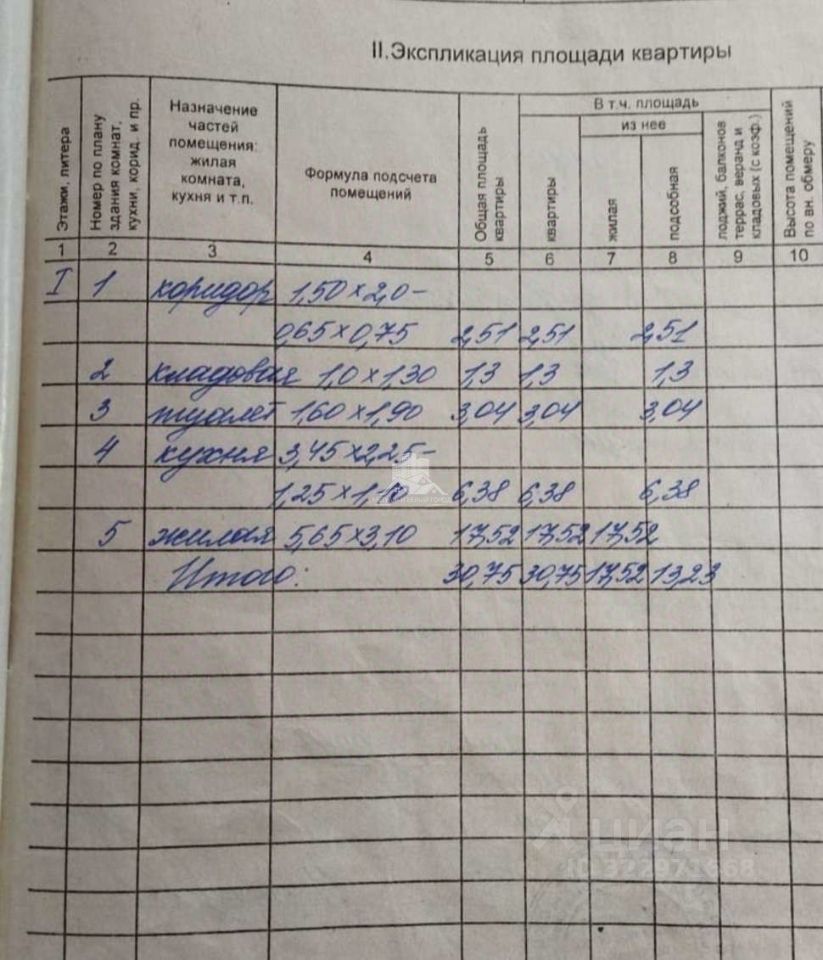 II.Экспликация площади квартиры
Этажи. литера
Номер по плану здания комнат, кухни, корид. и пр.
Назначение частей помещения: жилая комната, кухня и т.п.
Формула подсчета помещений
Общая площадь квартиры
В т.ч. площадь
из нее
квартиры
жилая
подсобная
лоджий, балконов террас, веранд и кладовых (с коэф.)
Высота помещений по вн. обмеру
1 2 3 4 5 6 7 8 9 10
I 1 коридор 1,50×2,0-
0,65×0,75 2,51 2,51 2,51
2 кладовая 1,0×1,30 1,3 1,3 1,3
3 туалет 1,60×1,90 3,04 3,04 3,04
4 кухня 3,45×2,25-
1,25×1,10 6,38 6,38 6,38
5 жилая 5,65×3,10 17,52 17,52 17,52
Итого: 30,75 30,75 17,52 13,23
циан